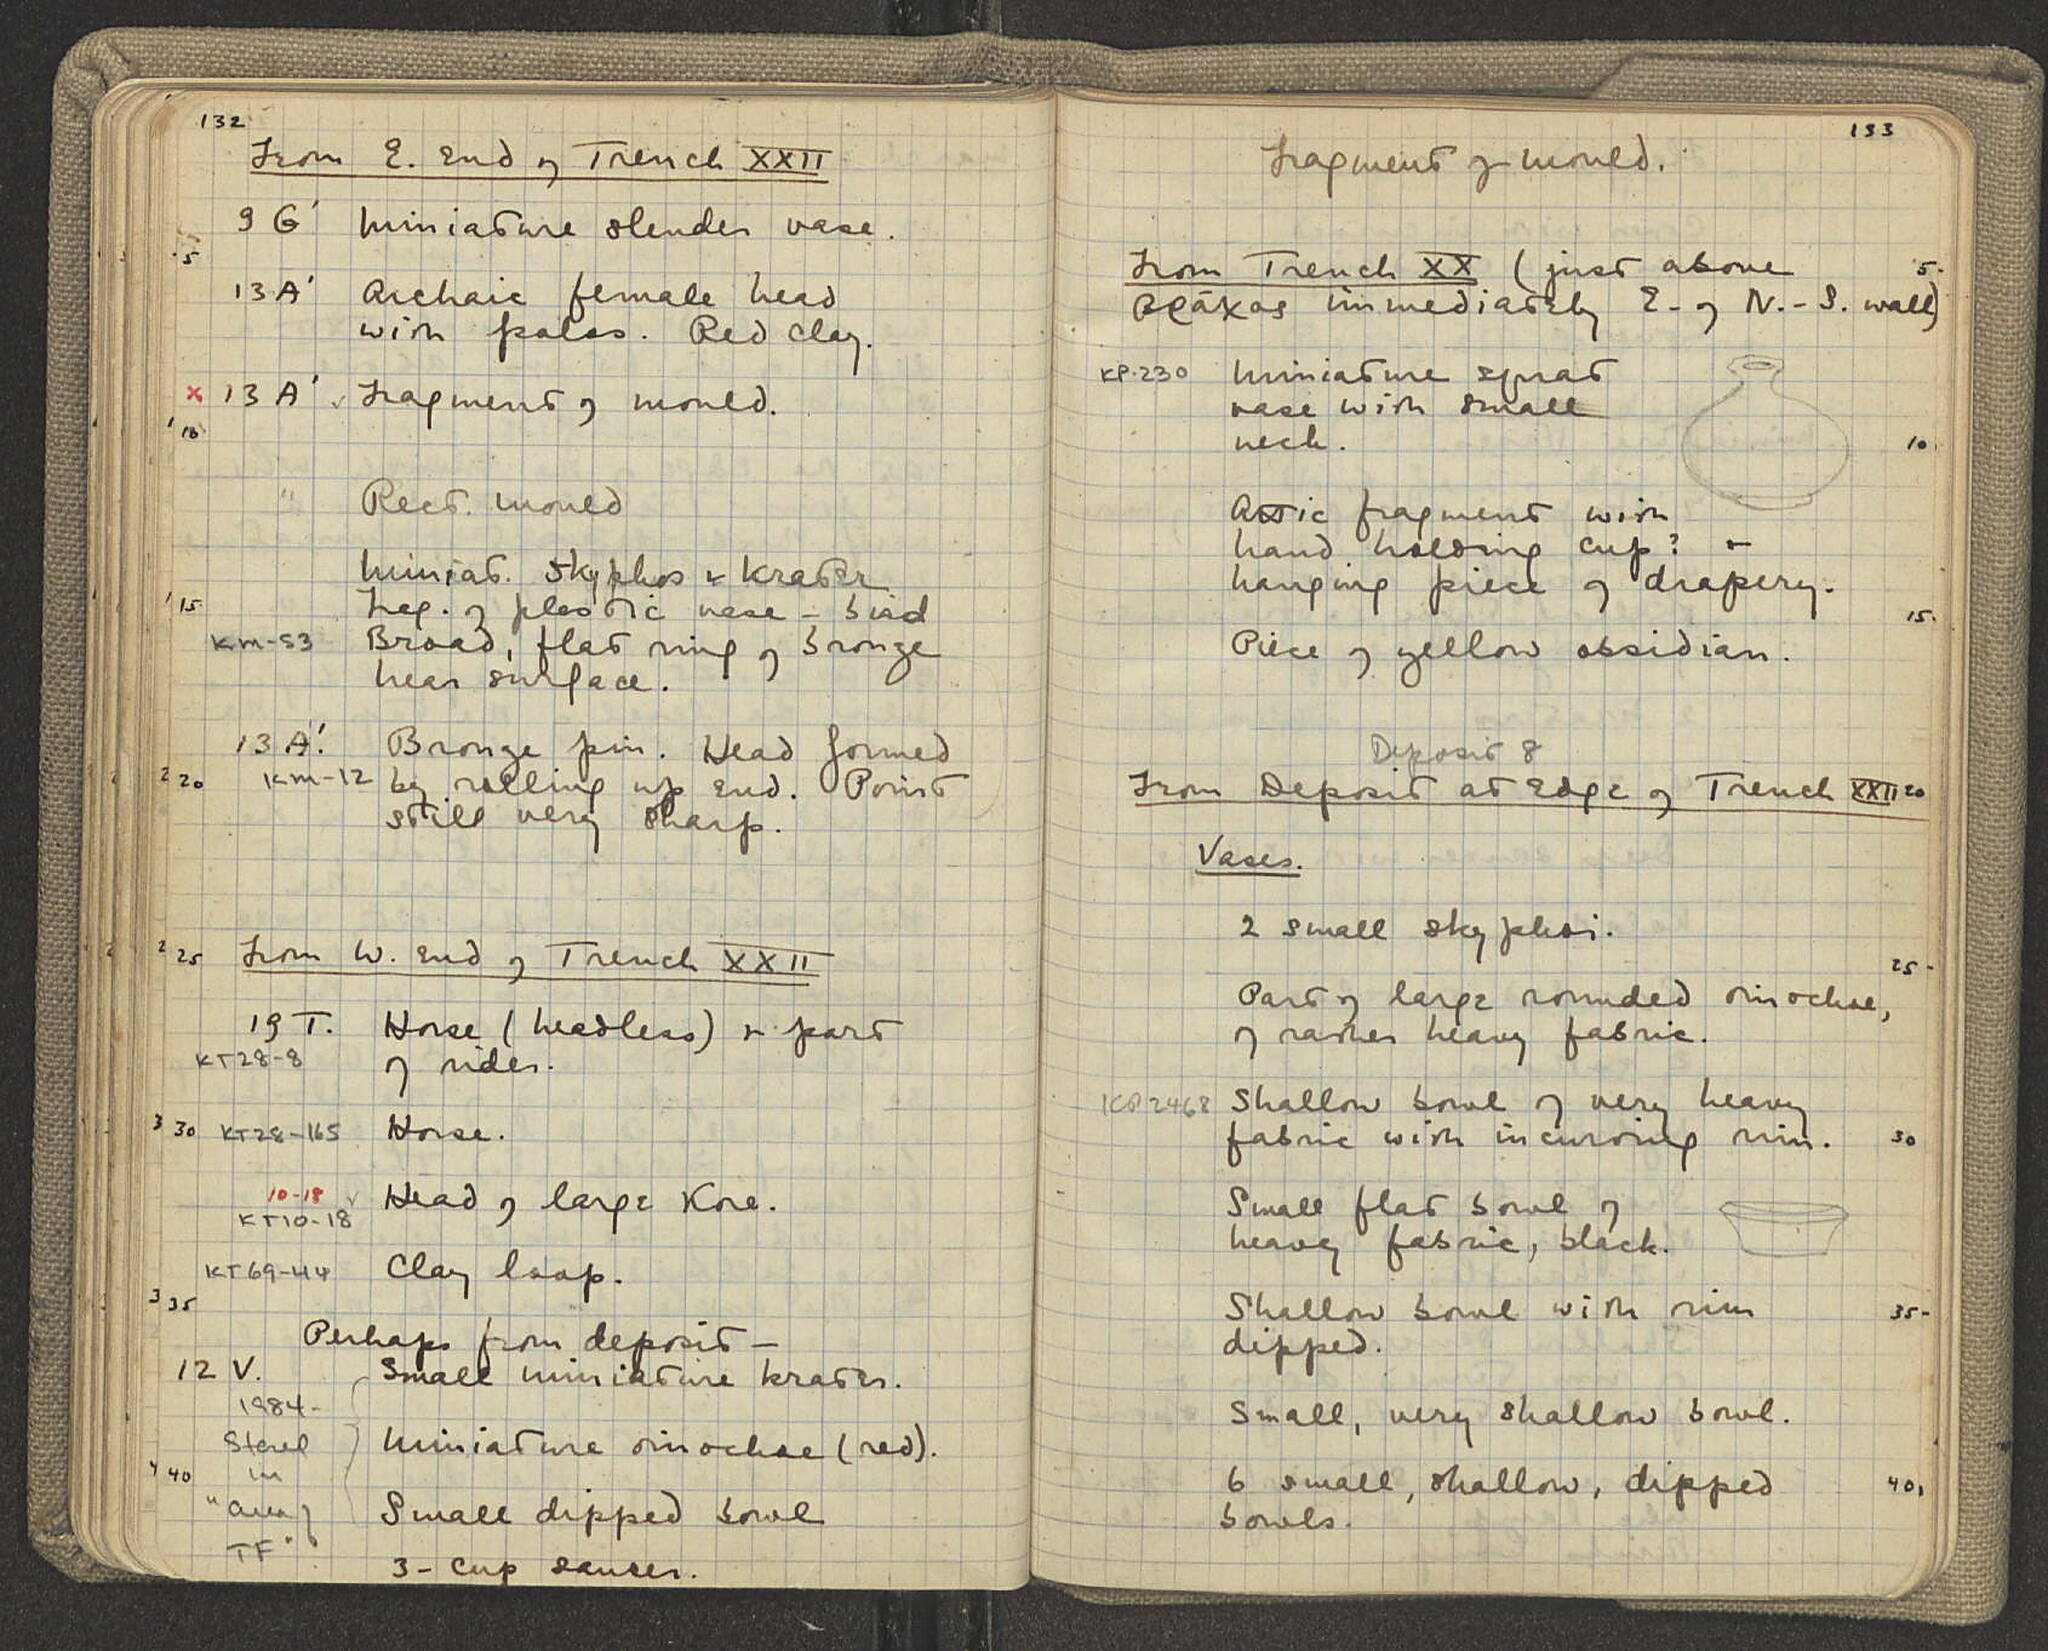 132
From E. End of Trench XXII
9 G' Miniature slender vase.
5
13 A' Archaic female head
with polos. Red clay.
x 13 A' ✓ Fragment of mould.
10
" Rect. mould
Miniat. skyphos & krater
15 Frg. of plastic vase – bird
KM-53 Broad, flat ring of bronze
near surface.
13 A'. Bronze pin. Head formed
20 KM-12 by rolling up end. Point
still very sharp.
25 From W. End of Trench XXII
19 T. Horse (headless) & part
KT28-8 of rider.
30 KT28-165 Horse.
10-18 ✓ Head of large Kore.
KT10-18
KT69-44 Clay loop.
35
Perhaps from deposit –
12 V. Small miniature krater.
1984-
Stored Miniature oinochoe (red).
40 in
" Small dipped bowl
TF"
3-cup saucer.
133
Fragment of mould.
From Trench XX (just above 5
βράχος immediately E. of N.-S. wall)
KP-230 Miniature squat
vase with small
neck. 10
Attic fragment with
hand holding cup? &
hanging piece of drapery.
15
Piece of yellow obsidian.
Deposit 8
From Deposit at Edge of Trench XXII 20
Vases.
2 small skyphoi.
25
Part of large rounded oinochoe,
of rather heavy fabric.
KP2468 Shallow bowl of very heavy
fabric with incurving rim. 30
Small flat bowl of
heavy fabric, black.
Shallow bowl with rim 35
dipped.
Small, very shallow bowl.
6 small, shallow, dipped 40
bowls.